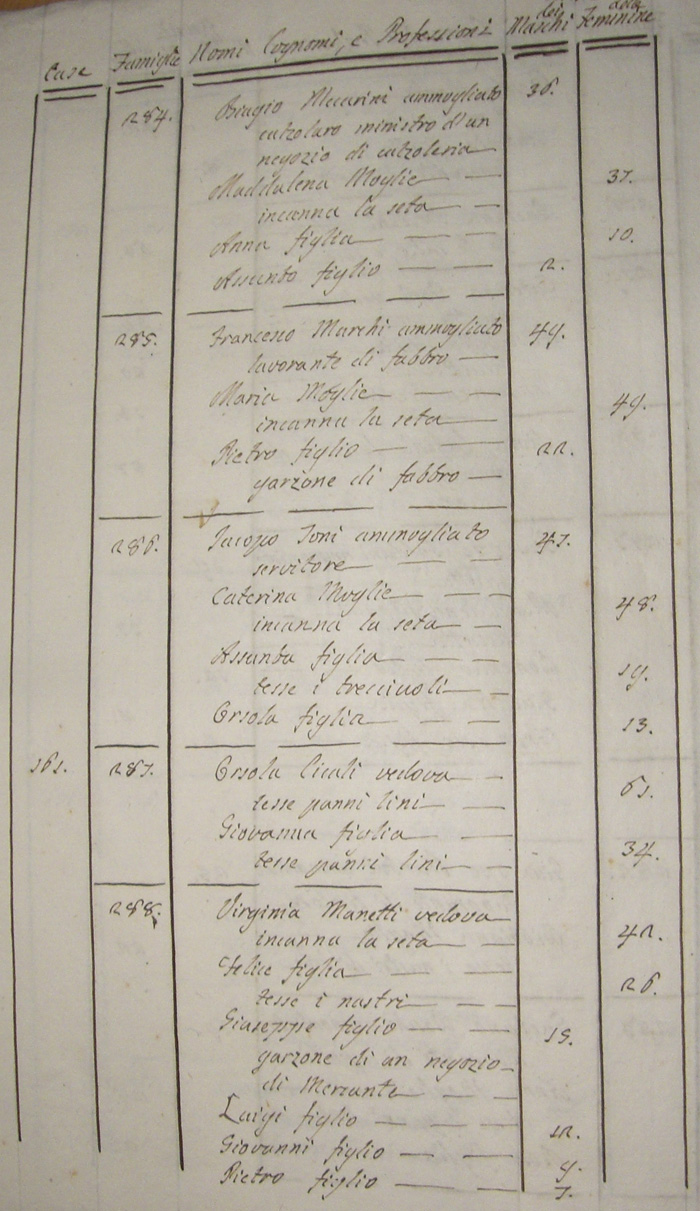 Case Famiglie Nomi Cognomi, e Professioni dei Maschi delle Feminine
284. Biagio Mecarini ammogliato 36.
calzolaro ministro d'un
negozio di calzoleria
Maddalena Moglie 37.
incanna la seta
Anna figlia 10.
Assunto figlio 2.
285. Francesco Marchi ammogliato 49.
lavorante di fabbro
Maria Moglie 49.
incanna la seta
Pietro figlio 22.
garzone di fabbro
286. Jacopo Toni ammogliato 47.
servitore
Caterina Moglie 48.
incanna la seta
Assunta figlia 19.
tesse i trecciuoli
Orsola figlia 13.
161. 287. Orsola Cicali vedova 61.
tesse panni lini
Giovanna figlia 34.
tesse panni lini
288. Virginia Manetti vedova 42.
incanna la seta
Felice figlia 26.
tesse i nastri
Giuseppe figlio 15.
garzone di un negozio
di Mercante
Luigi figlio 12.
Giovanni figlio 9.
Pietro figlio 7.